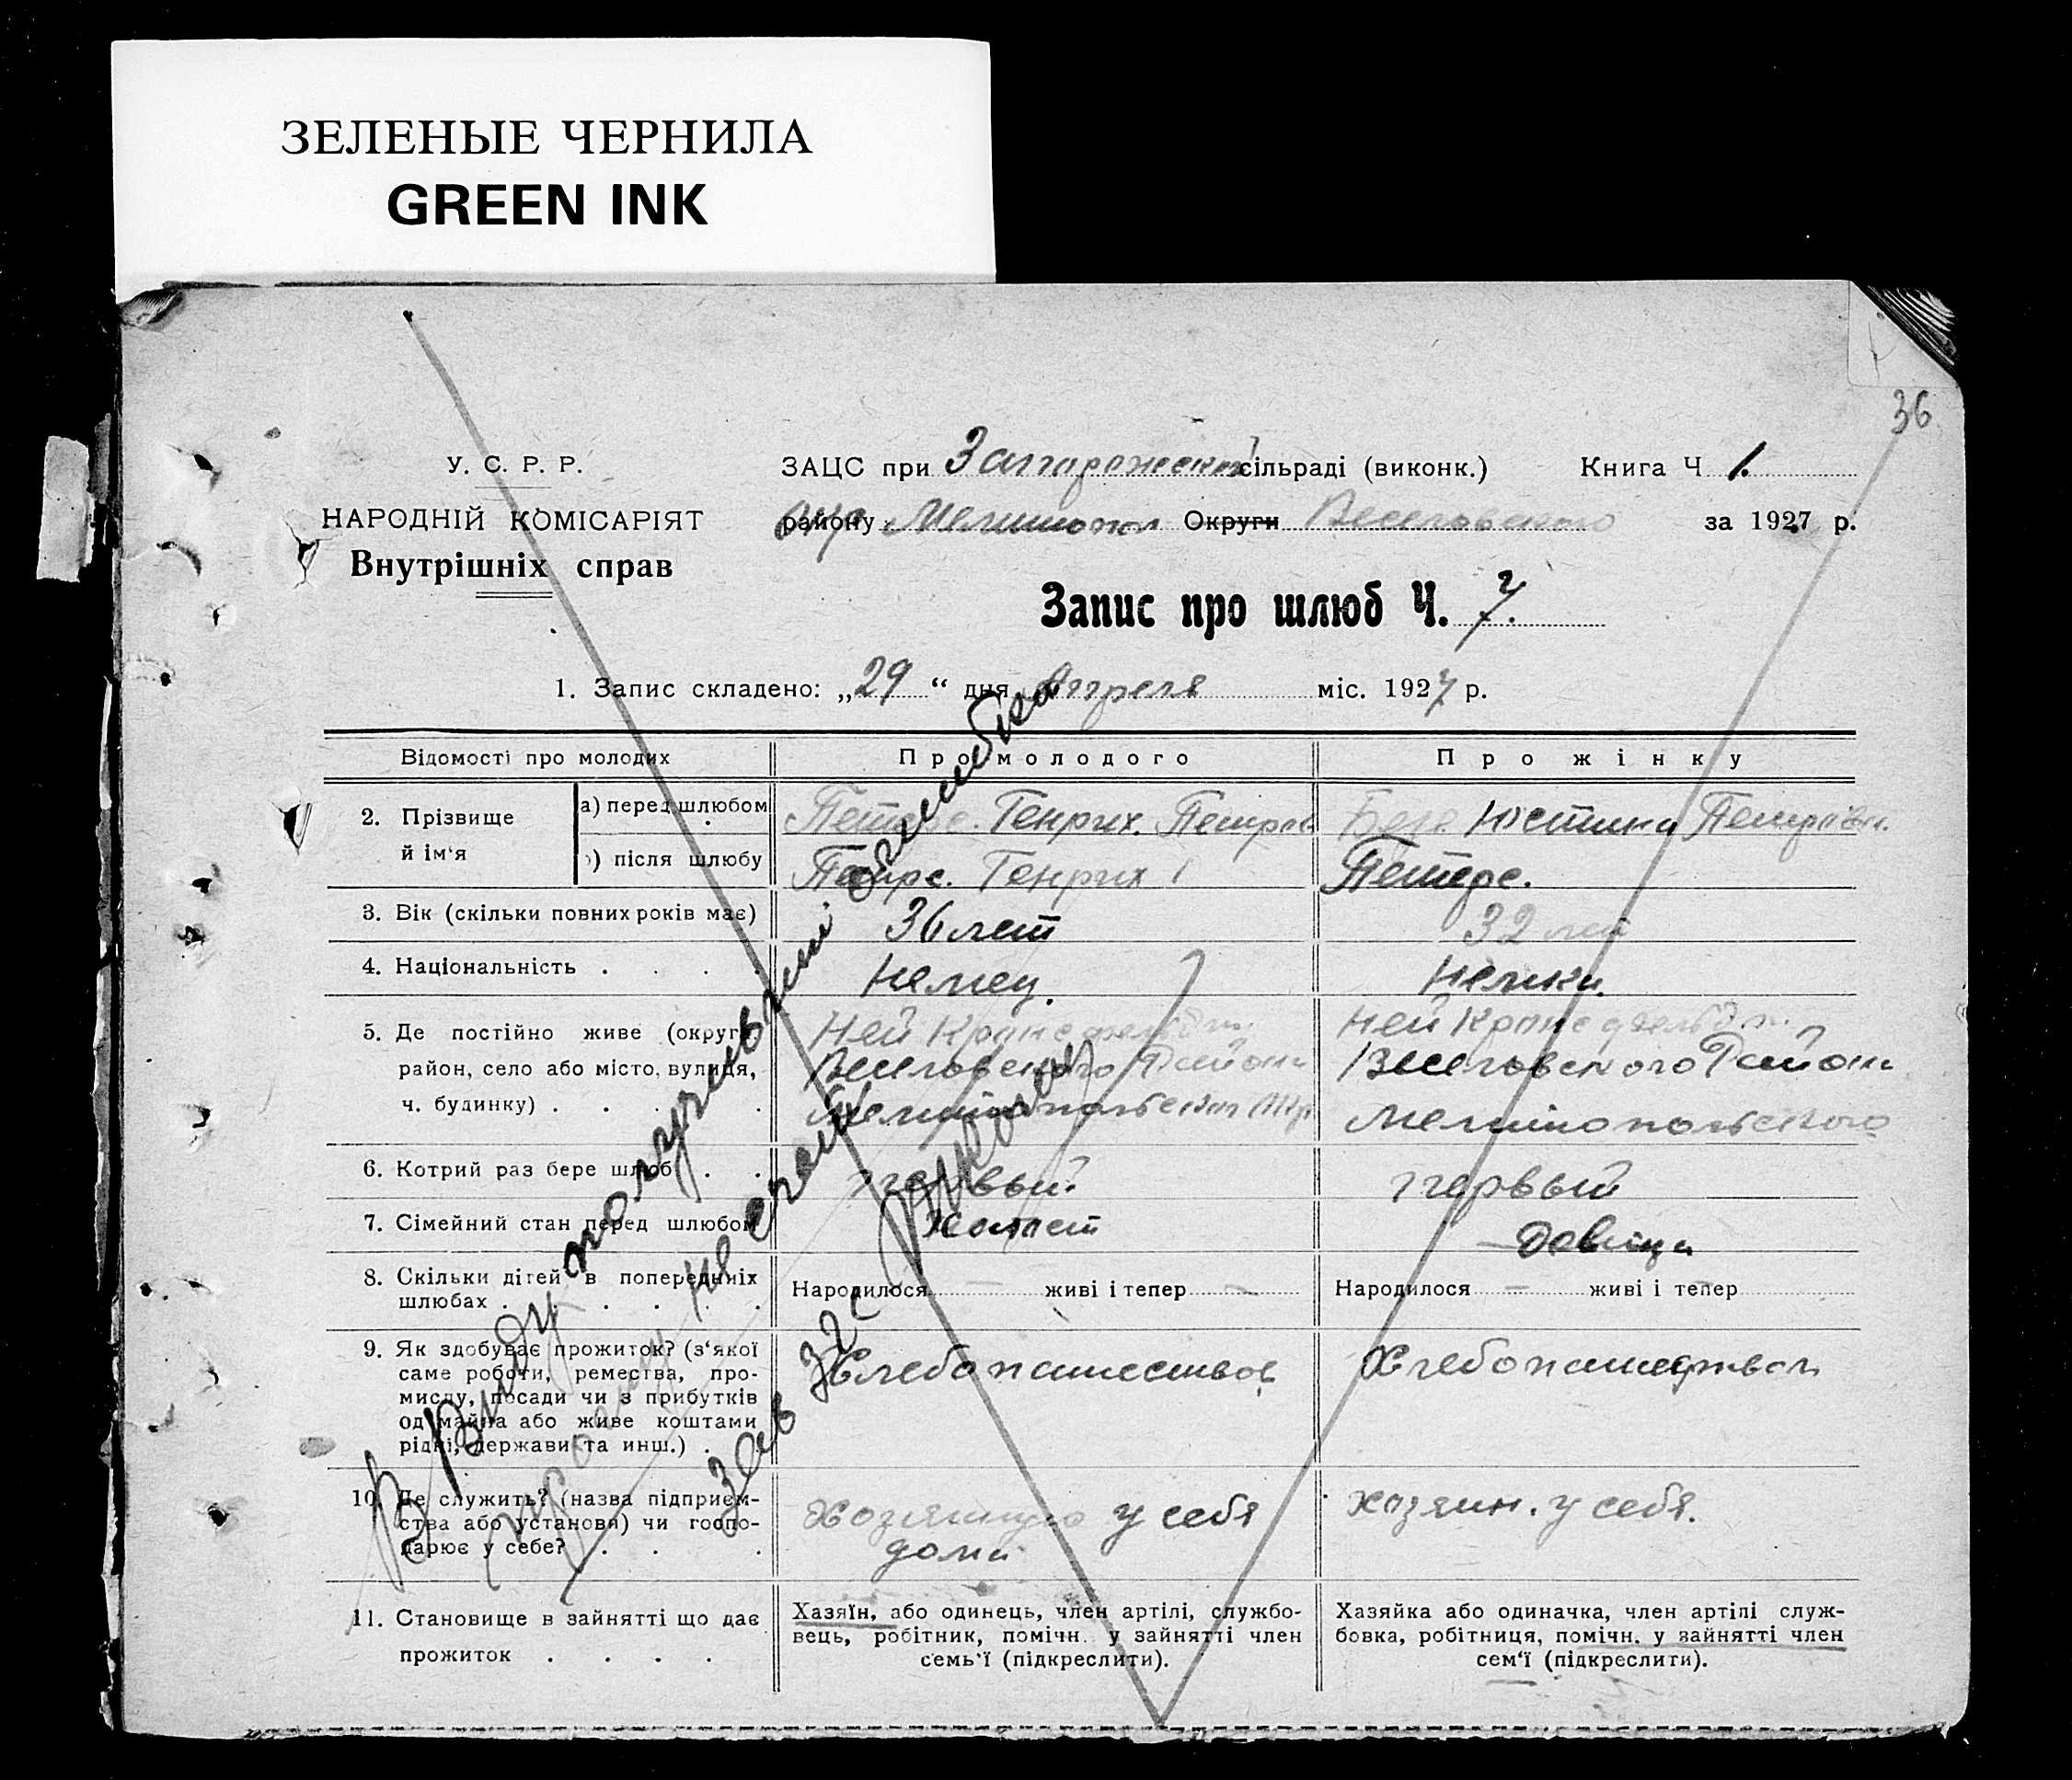 ЗЕЛЕНЫЕ ЧЕРНИЛА
GREEN INK
36
У. С. Р. Р.
НАРОДНІЙ КОМІСАРІЯТ
Внутрішніх справ
ЗАЦС при сільраді (виконк.) Книга Ч 1.
району Мелитопол Округи Веселовского за 1927 р.
Запис про шлюб Ч. 7.
1. Запис складено: „29“ дня Апреля міс. 1927 р.
Відомості про молодих Про молодого Про жінку
2. Прізвище й ім‘я
а) перед шлюбом Петерс. Генрих. Юстина
) після шлюбу Генрих Петерс.
3. Вік (скільки повних років має) 36 лет 32 лет
4. Національність . . . . Немец. Немка.
5. Де постійно живе (округа, Ней Кронсфельд Ней Кронсфельд
район, село або місто, вулиця, Веселовского Района Веселовского Района
ч. будинку) . . . . Мелитопольского
6. Котрий раз бере шлюб . . первый первый
7. Сімейний стан перед шлюбом Холост Девица
8. Скільки дітей в попередніх Народилося — живі і тепер — Народилося — живі і тепер
шлюбах . . . . .
9. Як здобуває прожиток? (з‘якої Хлебопашеством Хлебопашеством
саме роботи, ремества, про-
мислу, посади чи з прибутків
од майна або живе коштами
рідні, держави та инш.) .
10. Де служить? (назва підприєм- у себя хозяин. у себя.
ства або установи) чи госпо- дома
дарює у себе? . . .
11. Становище в зайнятті що дає Хазяїн, або одинець, член артілі, службо- Хазяйка або одиначка, член артілі служ-
прожиток . . . . вець, робітник, помічн. у зайнятті член бовка, робітниця, помічн. у зайнятті член
семь‘ї (підкреслити). сем‘ї (підкреслити).
В виду получившей ошибки
прошу не считать
Зав ЗАС